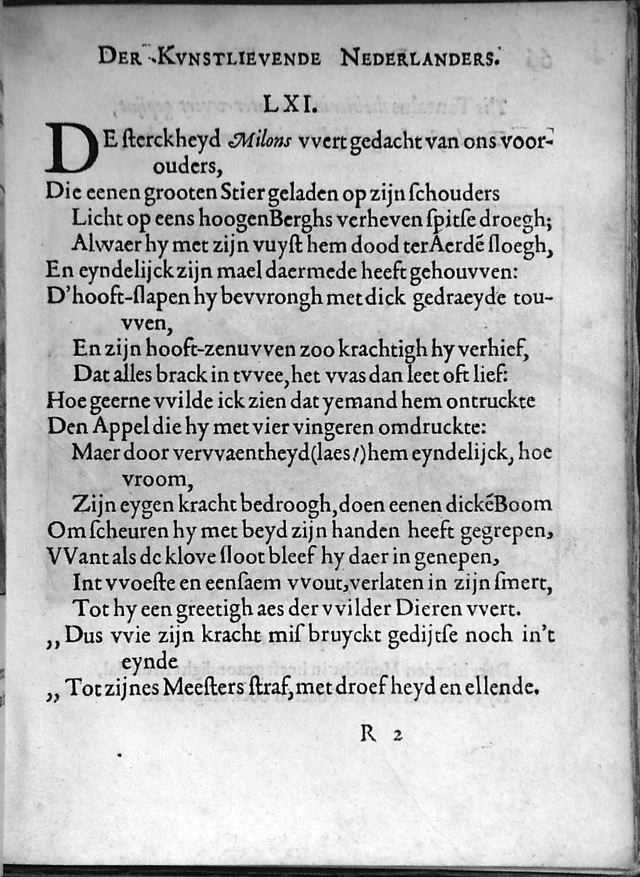 DER KVNSTLIEVENDE NEDERLANDERS.
LXI.
DE ſterckheyd Milons vvert gedacht van ons voor-
ouders,
Die eenen grooten Stier geladen op zijn ſchouders
Licht op eens hoogen Berghs verheven ſpitſe droegh;
Alwaer hy met zijn vuyſt hem dood ter Aerdē ſloegh,
En eyndelijck zijn mael daermede heeft gehouvven:
D'hooft-ſlapen hy bevvrongh met dick gedraeyde tou-
vven,
En zijn hooft-zenuvven zoo krachtigh hy verhief,
Dat alles brack in tvvee, het vvas dan leet oft lief:
Hoe geerne vvilde ick zien dat yemand hem ontruckte
Den Appel die hy met vier vingeren omdruckte:
Maer door vervvaentheyd (laes!) hem eyndelijck, hoe
vroom,
Zijn eygen kracht bedroogh, doen eenen dickē Boom
Om ſcheuren hy met beyd zijn handen heeft gegrepen,
VVant als de klove ſloot bleef hy daer in genepen,
Int vvoeſte en eenſaem vvout, verlaten in zijn ſmert,
Tot hy een greetigh aes der vvilder Dieren vvert.
,, Dus vvie zijn kracht miſ bruyckt gedijtſe noch in't
eynde
,, Tot zijnes Meeſters ſtraf, met droef heyd en ellende.
R 2